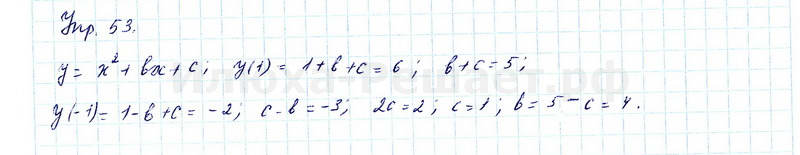 Упр. 53.
y = x² + bx + c; y(1) = 1 + b + c = 6; b + c = 5;
илюха-решает.рф
y(-1) = 1 - b + c = -2; c - b = -3; 2c = 2; c = 1; b = 5 - c = 4.